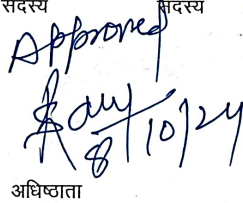 सदस्य सदस्य
Approved
8/10/24
अधिष्ठाता